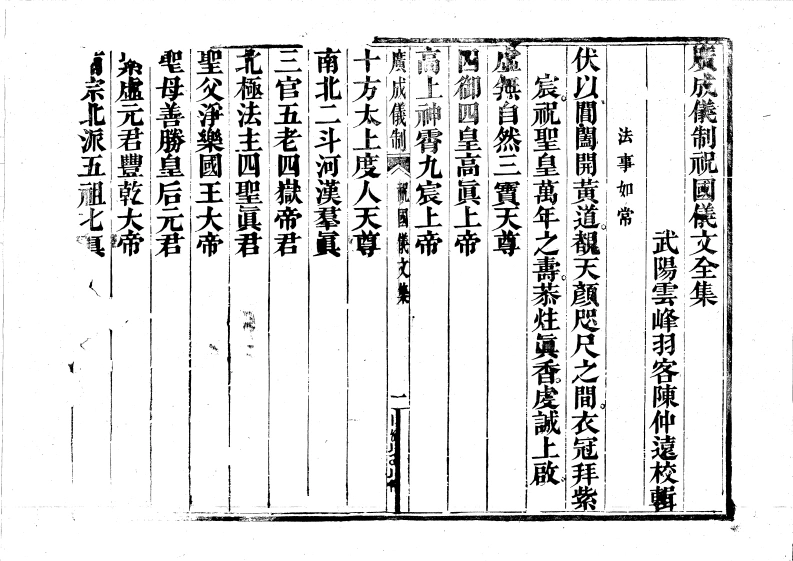 廣成儀制祝國儀文全集
武陽雲峰羽客陳仲遠校輯
法事如常
伏以閶闔開黃道覩天顏咫尺之間。衣冠拜紫
宸祝聖皇萬年之壽。恭炷眞香。虔誠上啟
虛無自然三寶天尊
四御四皇高眞上帝
高上神霄九宸上帝
廣成儀制 祝國儀文集 一
十方太上度人天尊
南北二斗河漢羣眞
三官五老四嶽帝君
北極法主四聖眞君
聖父淨樂國王大帝
聖母善勝皇后元君
紫虛元君豐乾大帝
南宗北派五祖七眞